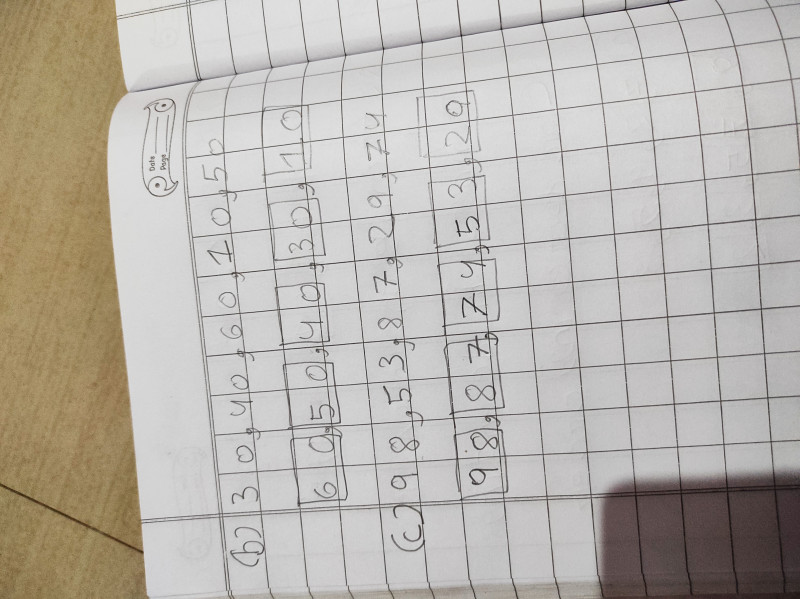 Date
Page
(b) 30, 40, 60, 10, 50
60, 50, 40, 30, 10
(c) 98, 53, 87, 29, 74
98, 87, 74, 53, 29